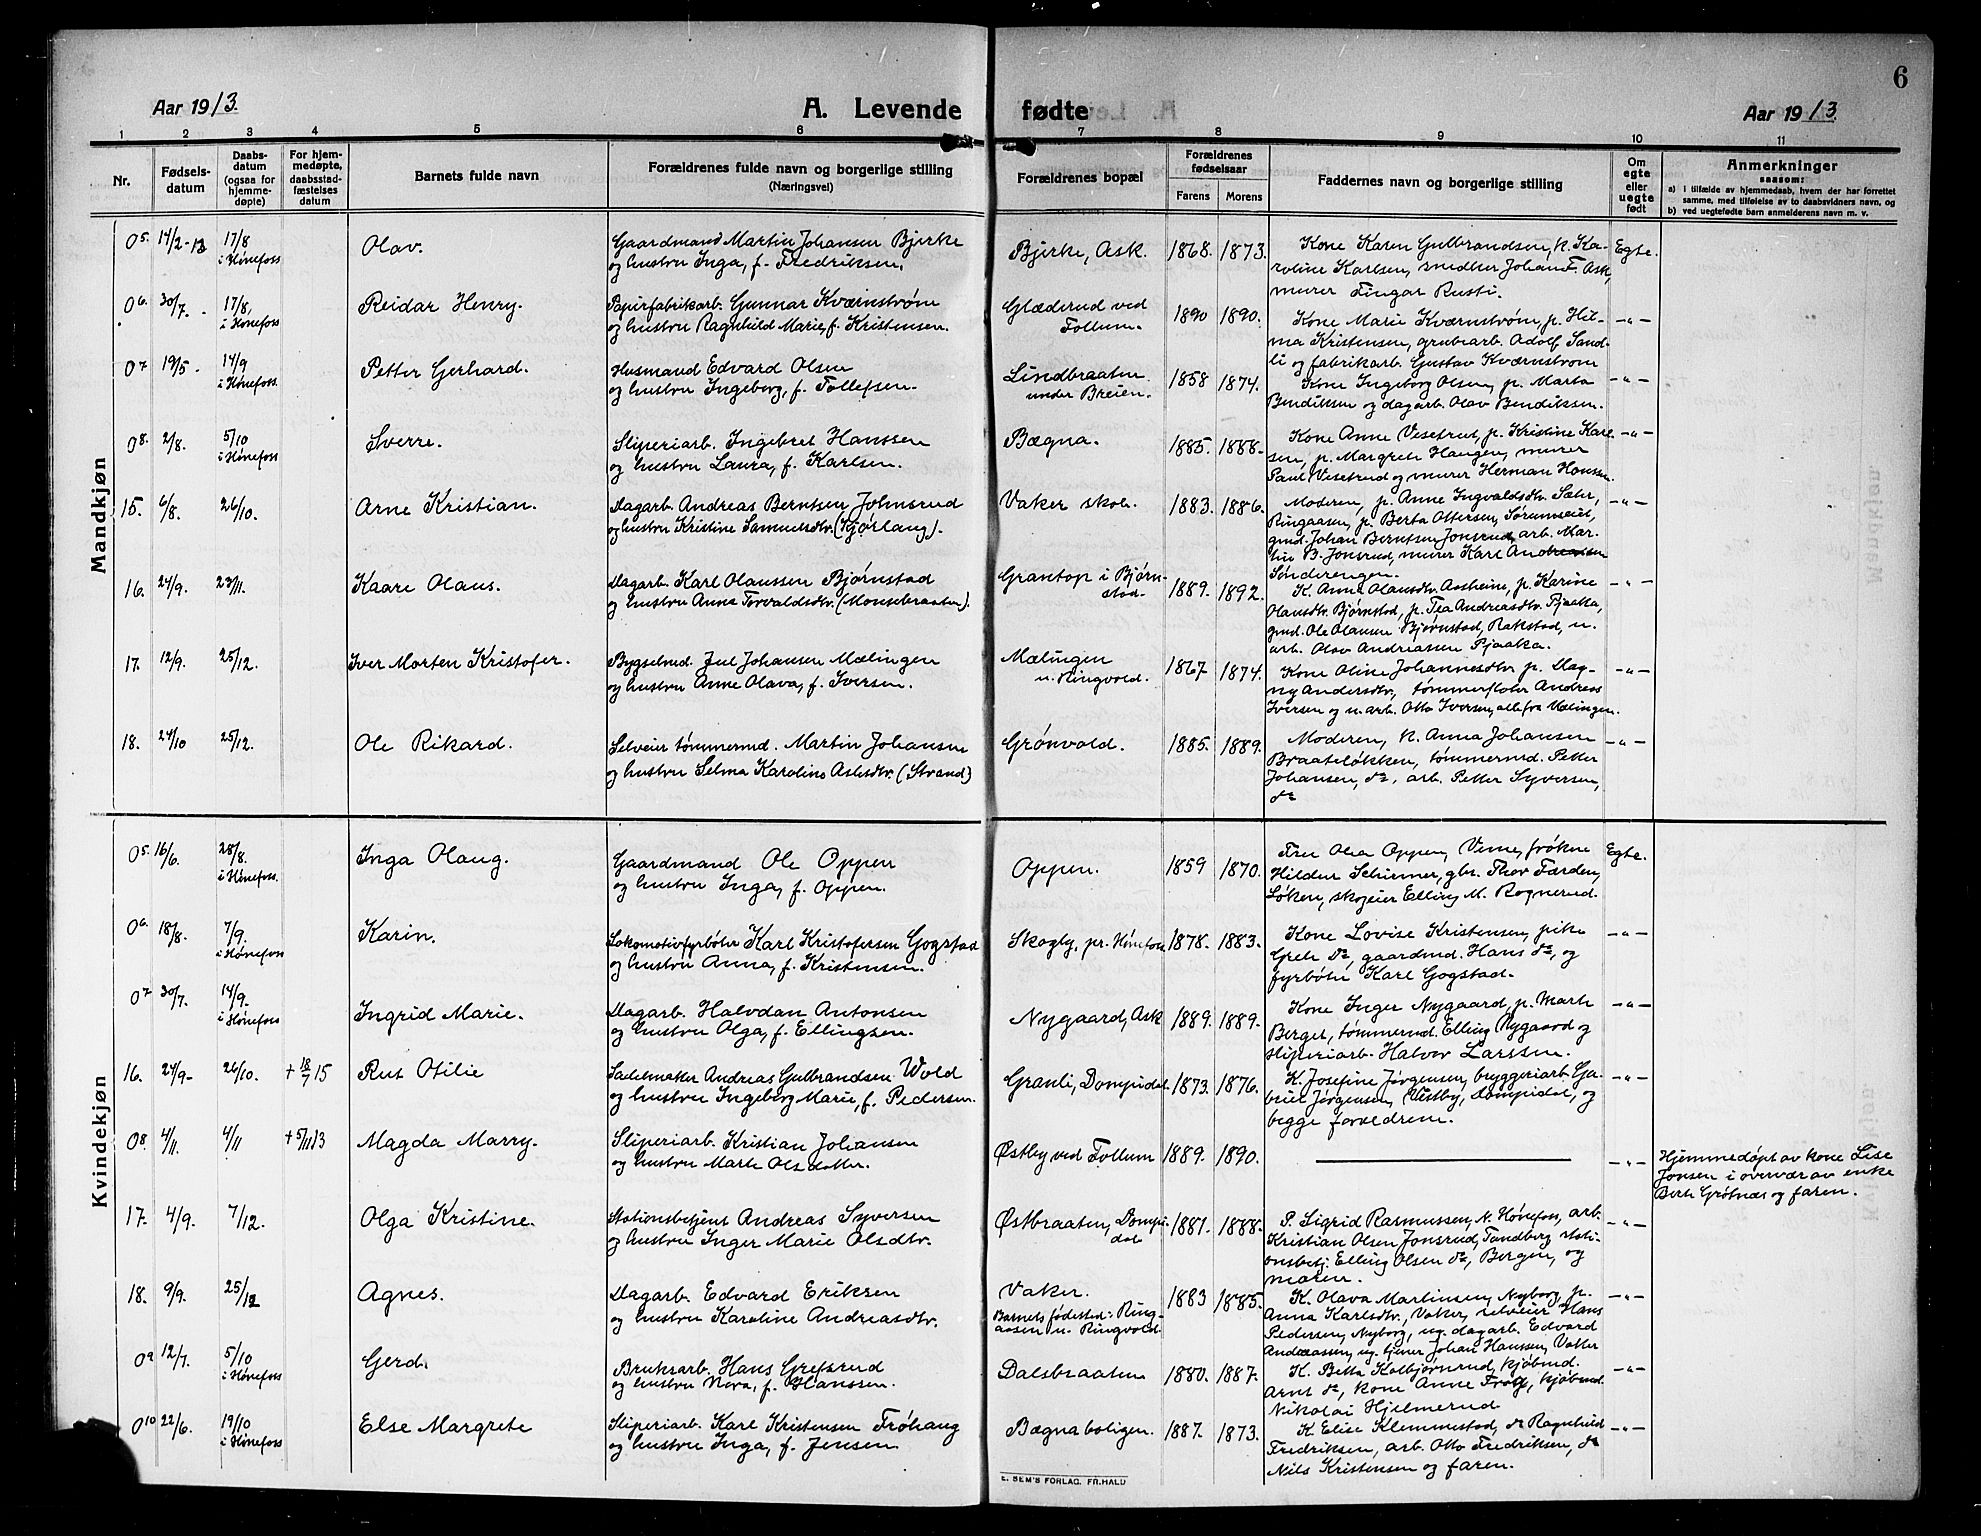 6
Aar 1913.
A. Levende fødte
Aar 1913.
1 2 3 4 5 6 7 8 9 10 11
Nr.
Fødsels-
datum
Daabs-
datum
(ogsaa for
hjemme-
døpte)
For hjem-
medøpte,
daabsstad-
fæstelses
datum
Barnets fulde navn
Forældrenes fulde navn og borgerlige stilling
(Næringsvei)
Forældrenes bopæl
Forældrenes
fødselsaar
Farens Morens
Faddernes navn og borgerlig stilling
Om
egte
eller
uegte
født
Anmerkninger
saasom:
a) i tilfælde av hjemmedaab, hvem der har forrettet
samme, med tilføielse av to daabsvidners navn, og
b) ved uegtefødte barn anmelderens navn m. v.
Mandkjøn
05. 14/2-13 17/8
i Hønefoss
Olav.
Gaardmand Martin Johansen Bjerke
og hustru Inga, f. Fredriksen.
Bjerke, Ask. 1868. 1873.
Kone Karen Gulbrandsen, k. Ka-
roline Karlsen, snedker Johan F. Ask,
murer Fingar Rusti.
Egte.
06. 30/7. 17/8,
i Hønefoss
Reidar Henry.
Papirfabrikarb. Gunnar Kværnstrøm
og hustru Ragnhild Marie, f. Kristensen.
Glæderud ved
Follum.
1890 1890.
Kone Marie Kværnstrøm, p. Hil-
ma Kristensen, grubearb. Adolf Sand-
li og fabrikarb. Gustav Kværnstrøm
-"-
07 19/5. 14/9
i Hønefoss.
Petter Gerhard.
Husmand Edvard Olsen
og hustru Ingeborg, f. Tollefsen.
Lindbraaten
under Breien.
1858 1874.
Kone Ingeborg Olsen, p. Marta
Bendiksen og dagarb. Olav Bendiksen.
-"-
08. 2/8. 5/10
i Hønefoss
Sverre.
Sliperiarb. Ingebret Hanssen
og hustru Laura, f. Karlsen.
Bægna. 1885. 1888.
Kone Anne Vesetrud, p. Kristine Karl-
sen, p. Margrete Haugen, murer
Paul Vesetrud og murer Herman Hanssen
-"-
15. 6/8. 26/10.
Arne Kristian.
Dagarb. Andreas Berntsen Johnsrud
og hustru Kristine Samuelsdtr. (Kjørlaug).
Vaker skole. 1883. 1886.
Moderen, p. Anne Ingvaldsdtr. Sæter,
Ringaasen, p. Berta Ottersen, Sørumseiet,
gmd. Johan Berntsen Jonsrud, arb. Mar-
tin B. Jonsrud, murer Karl Andreassen
Sønderengen.
-"-
16. 24/9. 23/11.
Kaare Olaus.
Dagarb. Karl Olaussen Bjørnstad
og hustru Anna Torvaldsdtr. (Monsebraaten).
Grantop i Bjørn-
stad.
1889. 1892.
K. Anna Olausdtr. Aasheim, p. Karine
Olausdtr. Bjørnstad, p. Tea Andreasdtr. Pjaaka,
gmd. Ole Olausen Bjørnstad, Rakstad, u.
arb. Olav Andreassen Pjaaka.
-"-
17. 12/9. 25/12.
Iver Morten Kristofer.
Bygselmd. Jul Johansen Mælingen
og hustru Anne Olava, f. Iversen.
Mælingen
u. Ringvold.
1867 1874.
Kone Oline Johannesdtr. p. Dag-
ny Andersdtr., tømmerfløter Andreas
Iversen og u. arb. Otto Iversen, alle fra Mælingen.
-"-
18. 24/10 25/12.
Ole Rikard.
Selveier tømmermd. Martin Johansen
og hustru Selma Karoline Aslesdtr. (Strand)
Grønvold. 1885. 1889.
Moderen, k. Anna Johansen
Braateløkken, tømmermd. Petter
Johansen, do, arb. Petter Syversen,
do
-"-
Kvindekjøn
05. 16/6. 28/8.
i Hønefoss.
Inga Olaug.
Gaardmand Ole Oppen
og hustru Inga, f. Oppen.
Oppen. 1859 1870.
Fru Olea Oppen, Veme, frøkne
Hildur Schinner, gbr. Thor Færden,
Løken, skogeier Elling M. Rognerud.
Egte.
06. 18/8. 7/9.
i Hønefoss
Karin.
Lokomotivfyrbøter Karl Kristofersen Gogstad
og hustru Anna, f. Kristensen.
Skogly, pr. Hønefoss 1878. 1883.
Kone Lovise Kristensen, pike
Grete do, gaardmd. Hans do, og
fyrbøter Karl Gogstad.
-"-
07 30/7. 14/9.
i Hønefoss
Ingrid Marie.
Dagarb. Halvdan Antonsen
og hustru Olga, f. Ellingsen.
Nygaard, Ask 1889. 1889.
Kone Inger Nygaard, p. Marte
Berger, tømmermd. Elling Nygaard og
sliperiarb. Halvor Larssen.
-"-
16. 24/9- 26/10. + 18/7 15
Rut Otilie
Sadelmaker Andreas Gulbrandsen Wold
og hustru Ingeborg Marie, f. Pedersen.
Granli, Dompidal. 1873. 1876.
K. Josefine Jørgensen, bryggeriarb. Ga-
briel Jørgensen, Vestby, Dompidal, og
begge forældrene.
-"-
08. 4/11. 4/11 + 5/11 13
Magda Marry.
Sliperiarb. Kristian Johansen
og hustru Marte Olsdatter.
Østby ved Follum 1889. 1890.
-"-
Hjemmedøpt av kone Lise
Jonsen i overvær av enke
Berte Grøtnæs og faren.
17. 4/9. 7/12.
Olga Kristine.
Stationsbetjent Andreas Syversen
og hustru Inger Marie Olsdtr.
Østbraaten, Dompi-
dal
1881. 1888.
P. Sigrid Rasmussen, N. Hønefoss, arb.
Kristian Olsen Jonsrud, Tandberg stati-
onsbetj. Elling Olsen do, Bergen, og
moren.
-"-
18. 9/9. 25/12
Agnes.
Dagarb. Edvard Eriksen
og hustru Karoline Andreasdtr.
Vaker.
Barnets fødested: Ring-
aasen u. Ringvold
1883 1885.
K. Olava Martinsen, Nyborg, p.
Anna Karlsdtr., Vaker, selveier Hans
Pedersen, Nyborg, ug. dagarb. Edvard
Andreassen, ug. tjener Johan Hanssen, Vaker
-"-
09 12/7. 5/10
i Hønefoss
Gerd.
Bruksarb. Hans Grefsrud
og hustru Nora, f. Hanssen.
Dalsbraaten 1880. 1887.
K. Betta Kolbjørnrud, kjøbmd.
Arnt do, kone Anne Frøg, kjøbmd.
Nikolai Hjelmerud
-"-
010 22/6. 19/10
i Hønefoss
Else Margrete
Sliperiarb. Karl Kristensen Frøhaug
og hustru Inga, f. Jensen
Bægnaboligen. 1887. 1873.
K. Elise Klemmestad, do Ragnhild
Fredriksen, arb. Otto Fredriksen, do
Nils Kristensen og faren.
-"-
E. SEM'S FORLAG. FR.HALD